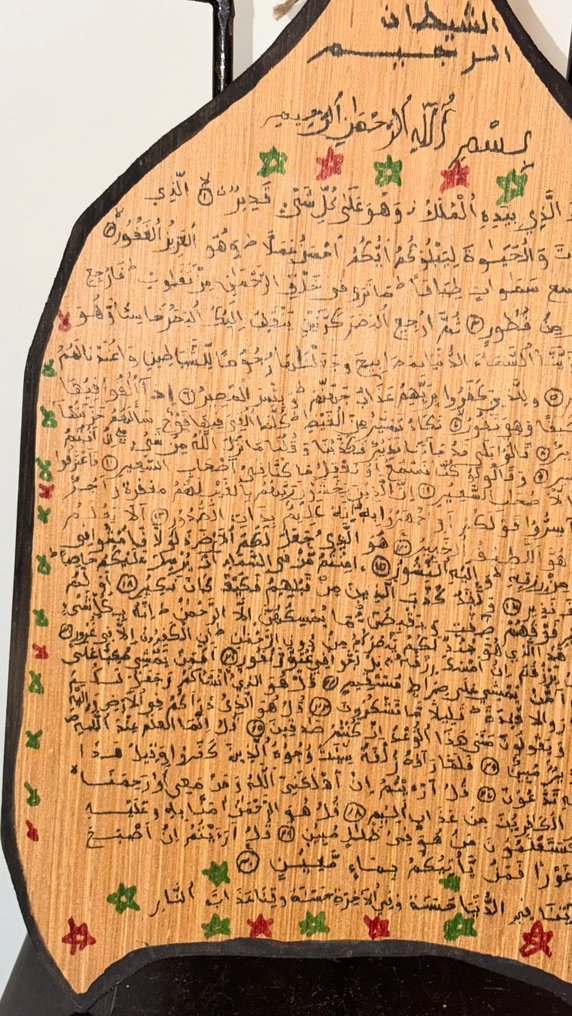 الشيطان
الرجيم
بسم الله الرحمن الرحيم
الَّذِي بِيَدِهِ الْمُلْكُ وَهُوَ عَلَى كُلِّ شَيْءٍ قَدِيرٌ ١ الَّذِي
وَالْحَيَوٰةَ لِيَبْلُوَكُمْ أَيُّكُمْ أَحْسَنُ عَمَلًا وَهُوَ الْعَزِيزُ الْغَفُورُ ٢
سبع سموات طباقا ما ترى في خلق الرحمن من تفاوت فارجع
من فطور ٣ ثم ارجع البصر كرتين ينقلب إليك البصر خاسئا وهو
السماء الدنيا بمصابيح وجعلناها رجوما للشياطين وأعتدنا لهم
وللذين كفروا بربهم عذاب جهنم وبئس المصير ٦ إذا ألقوا فيها
وهي تفور ٧ تكاد تميز من الغيظ كلما ألقي فيها فوج سألهم خزنتها
قالوا بلى قد جاءنا نذير فكذبنا وقلنا ما نزل الله من شيء إن أنتم
وقالوا لو كنا نسمع أو نعقل ما كنا في أصحاب السعير ١٠ فاعترفوا
السعير ١١ إن الذين يخشون ربهم بالغيب لهم مغفرة وأجر
وأسروا قولكم أو اجهروا به إنه عليم بذات الصدور ١٣ ألا يعلم
وهو اللطيف الخبير ١٤ هو الذي جعل لكم الأرض ذلولا فامشوا في
من رزقه وإليه النشور ١٥ ءأمنتم من في السماء أن يرسل عليكم حاصبا
نذير ولقد كذب الذين من قبلهم فكيف كان نكير ١٨ أولم
فوقهم صافات ويقبضن ما يمسكهن إلا الرحمن إنه بكل شيء
هذا الذي هو جند لكم ينصركم من دون الرحمن إن الكافرون إلا في غرور
إن أمسك رزقه بل لجوا في عتو ونفور ٢١ أفمن يمشي مكبا على
أمن يمشي على صراط مستقيم ٢٢ قل هو الذي أنشأكم وجعل لكم
والأفئدة قليلا ما تشكرون ٢٣ قل هو الذي ذرأكم في الأرض وإليه
ويقولون متى هذا الوعد إن كنتم صادقين ٢٥ قل إنما العلم عند الله
نذير مبين ٢٦ فلما رأوه زلفة سيئت وجوه الذين كفروا وقيل هذا
به تدعون ٢٧ قل أرءيتم إن أهلكني الله ومن معي أو رحمنا
الكافرين من عذاب أليم ٢٨ قل هو الرحمن ءامنا به وعليه
فستعلمون من هو في ضلال مبين ٢٩ قل أرءيتم إن أصبح
غورا فمن يأتيكم بماء معين ٣٠
في الدنيا حسنة وفي الآخرة حسنة وقنا عذاب النار